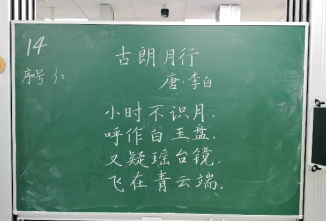 14
序号30
古朗月行
唐·李白
小时不识月.
呼作白玉盘.
又疑瑶台镜.
飞在青云端.